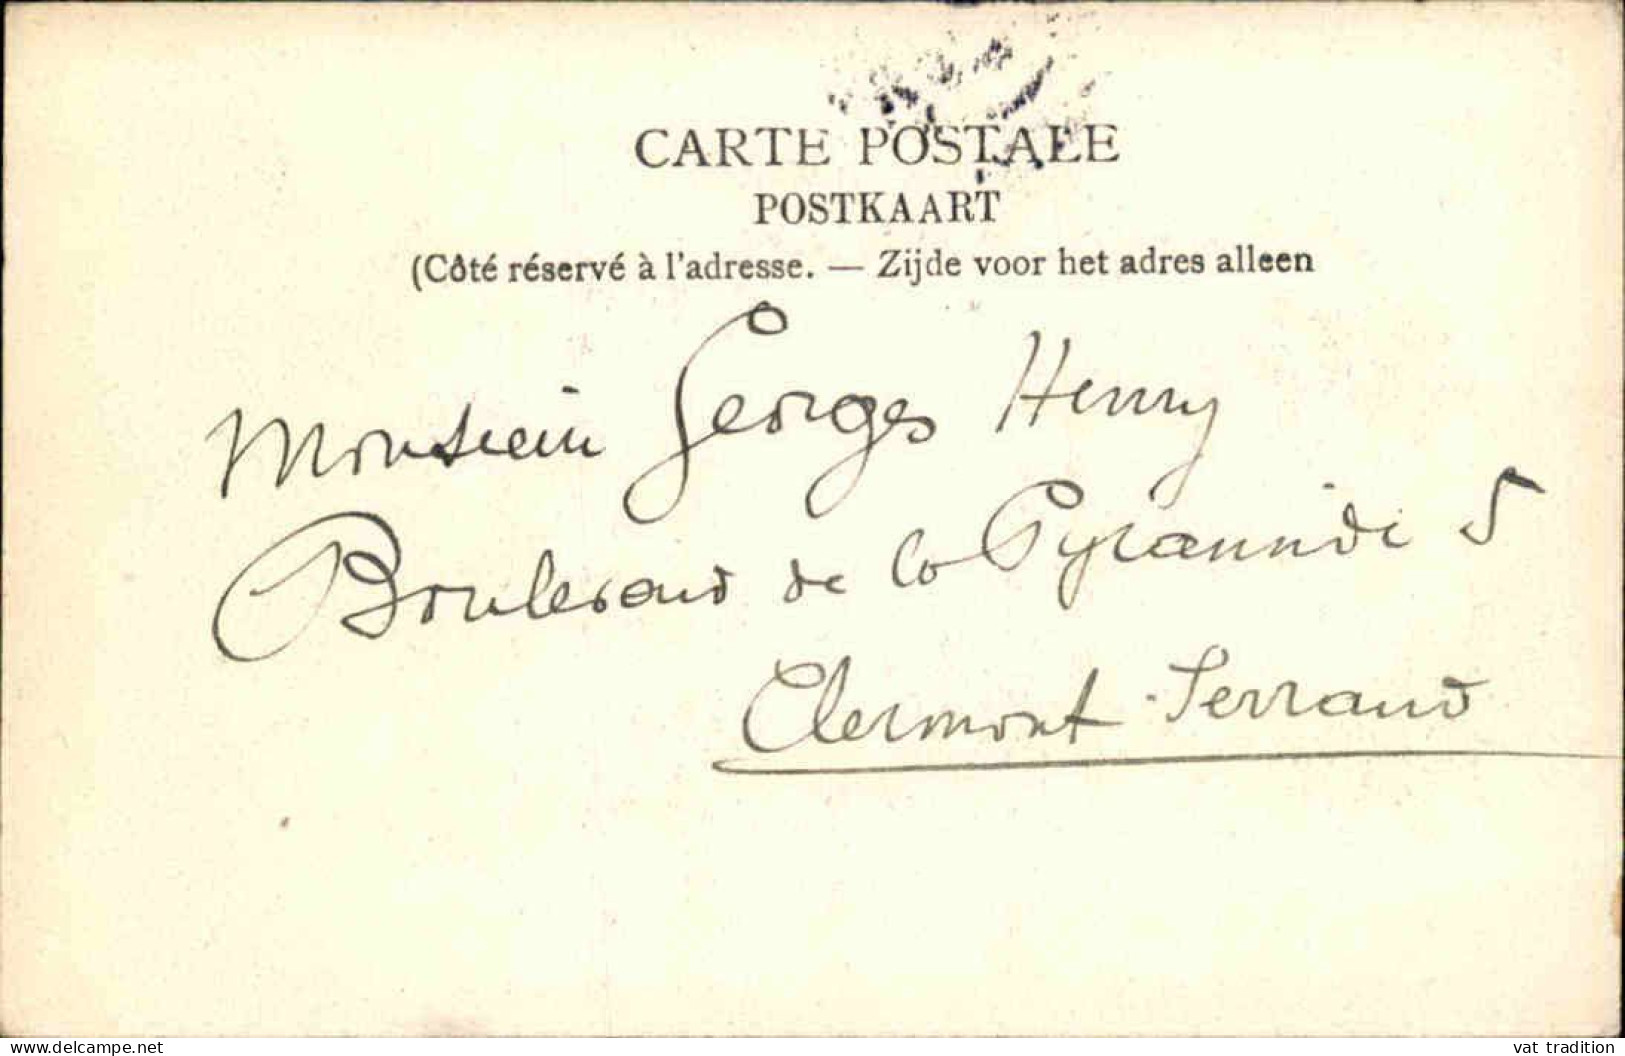 CARTE POSTALE
POSTKAART
(Côté réservé à l'adresse. — Zijde voor het adres alleen
Monsieur Georges Henry
Boulevard de la Pyramide 5
Clermont-Ferrand
www.delcampe.net
vat tradition